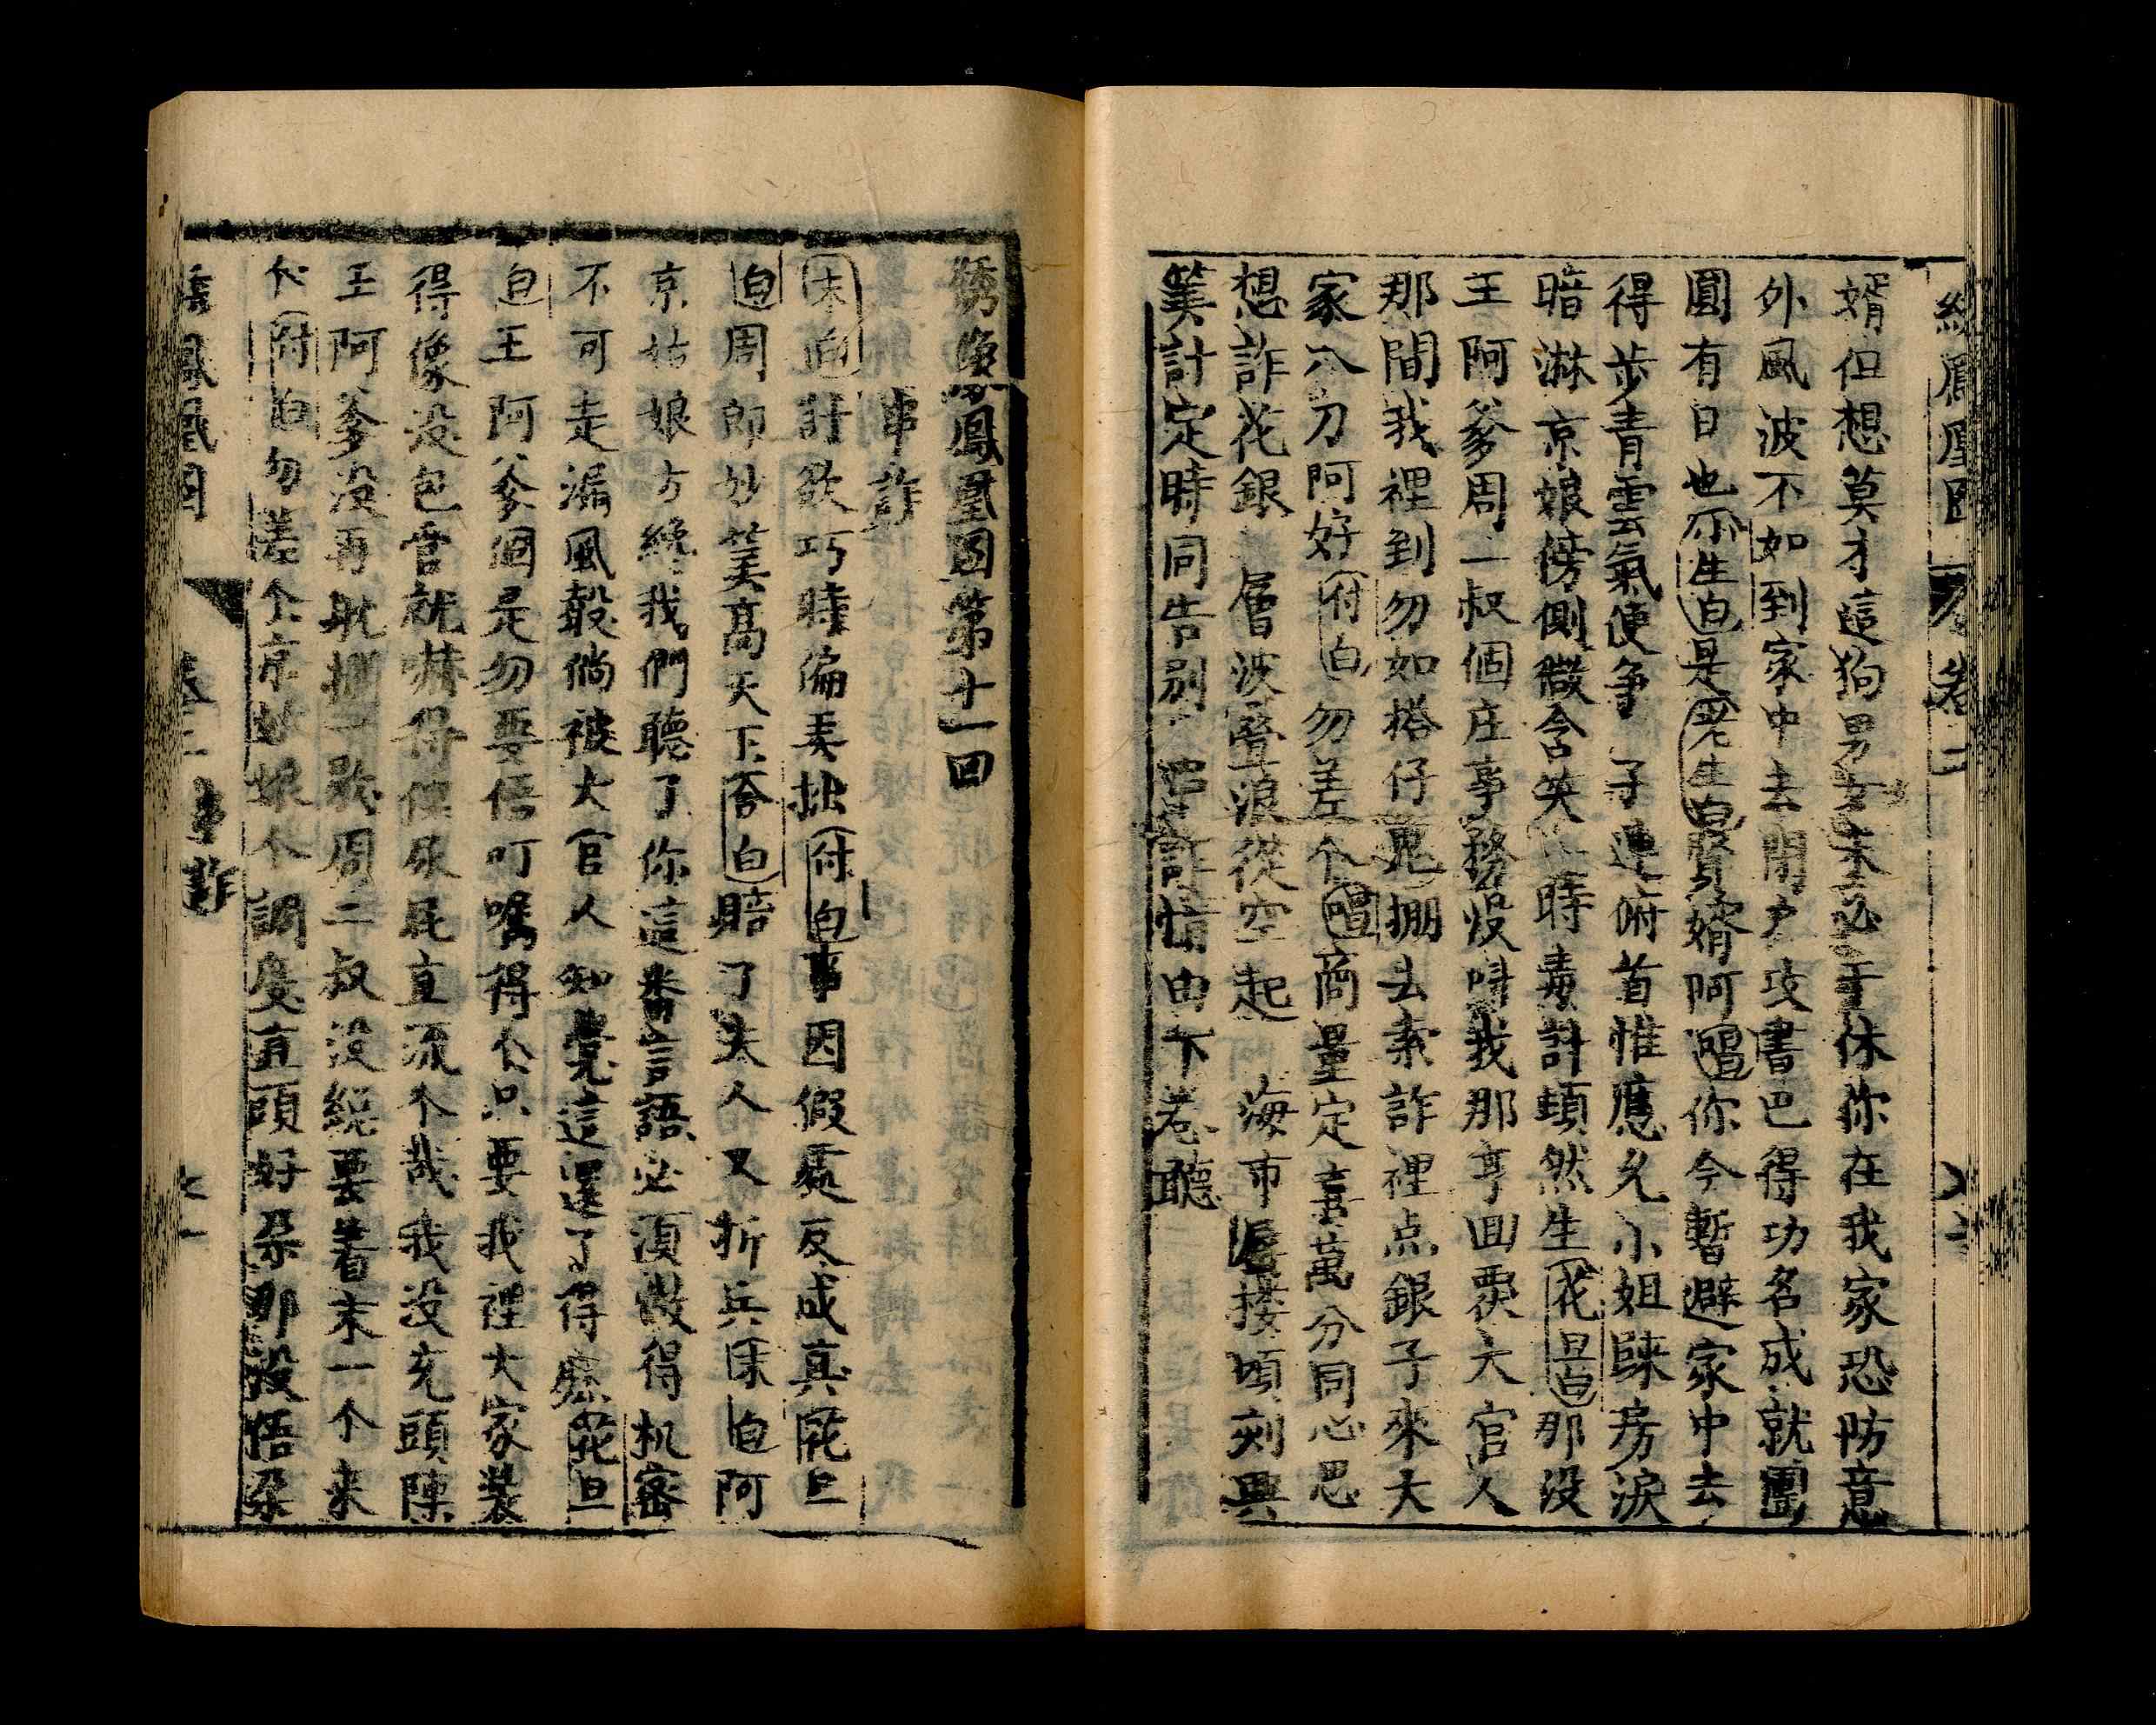 鳳凰圖 卷二
婿但想莫才這狗男女未必干休你在我家恐防意
外風波不如到家中去閉户攻書巴得功名成就團
圓有日也小生白是老生白賢婿阿唱你今暫避家中去
得步青雲氣便争 子連俯首惟應允小姐歸房淚
暗淋京娘傍側微含笑 時毒計頓然生花旦白那没
王阿爹周二叔個庄事務没啃我那亨回覆大官人
那間我裡到勿如搭仔鬼掤去索詐裡点銀子來大
家八刀阿好付白勿差个唱商量定喜萬分同心思
想詐花銀 層波疊浪從空起 海市蜃楼頃刻興
筭計定時同告别 串詐情由下卷聽
綉像鳳凰圖第十一回
串詐
末白計欲巧時偏弄拙付白事因假處反成真花旦
白周郎妙筭高天下合白賠了夫人又折兵末白阿
京姑娘方纔我們聽了你這番言語必須做得机密
不可走漏風殼倘被大官人知覺這還了得麽花旦
白王阿爹個是勿要悟叮嘱得个只要我裡大家裝
得像没包管就嚇得俚尿屁直流个哉我没充頭陣
王阿爹没再耽擱一歇周二叔没纔要着末一个来
个付白勿差个京姑娘个調度直頭好朵那没悟朵
鳳凰圖 卷二 串詐